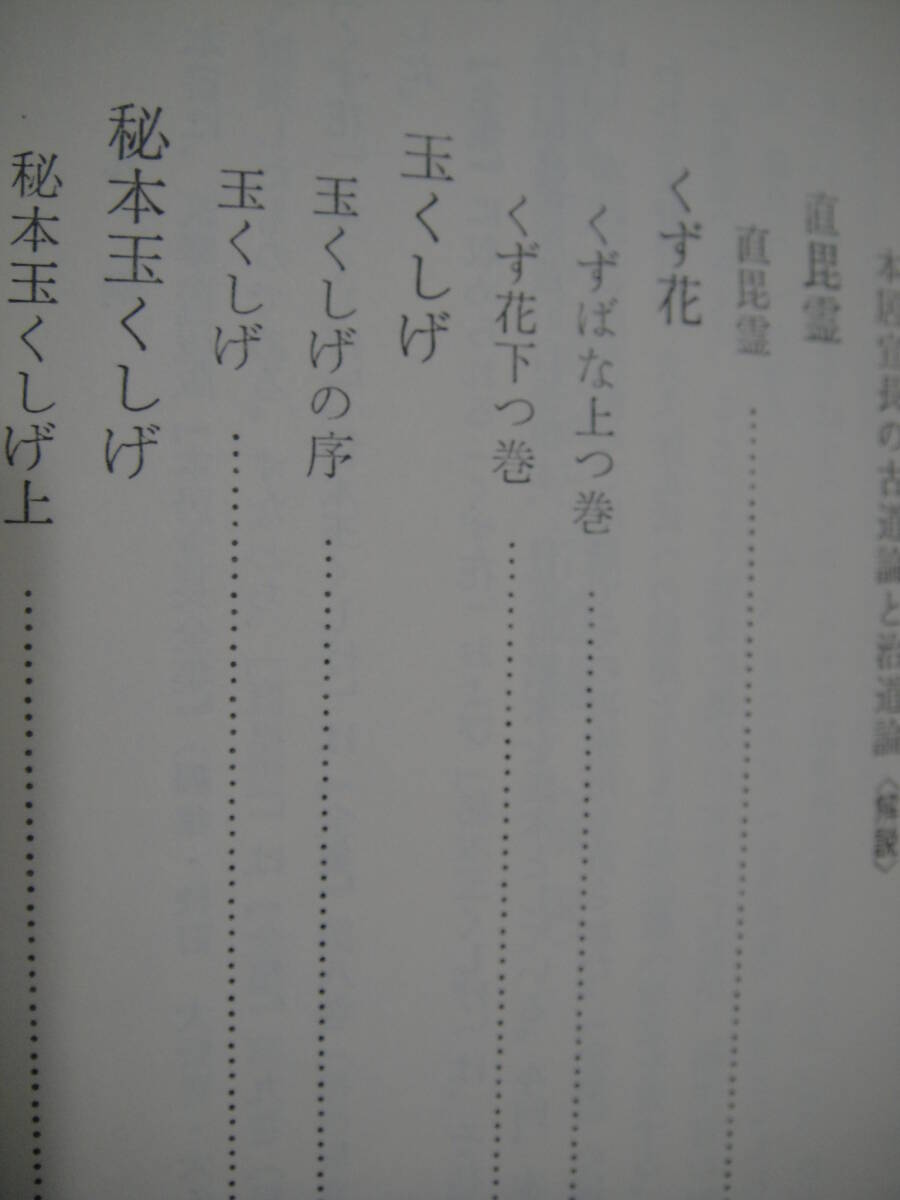 本居宣長の古道論と治道論〈解説〉
直毘霊
直毘霊
くず花
くずばな上つ巻
くず花下つ巻
玉くしげ
玉くしげの序
玉くしげ
秘本玉くしげ
秘本玉くしげ上